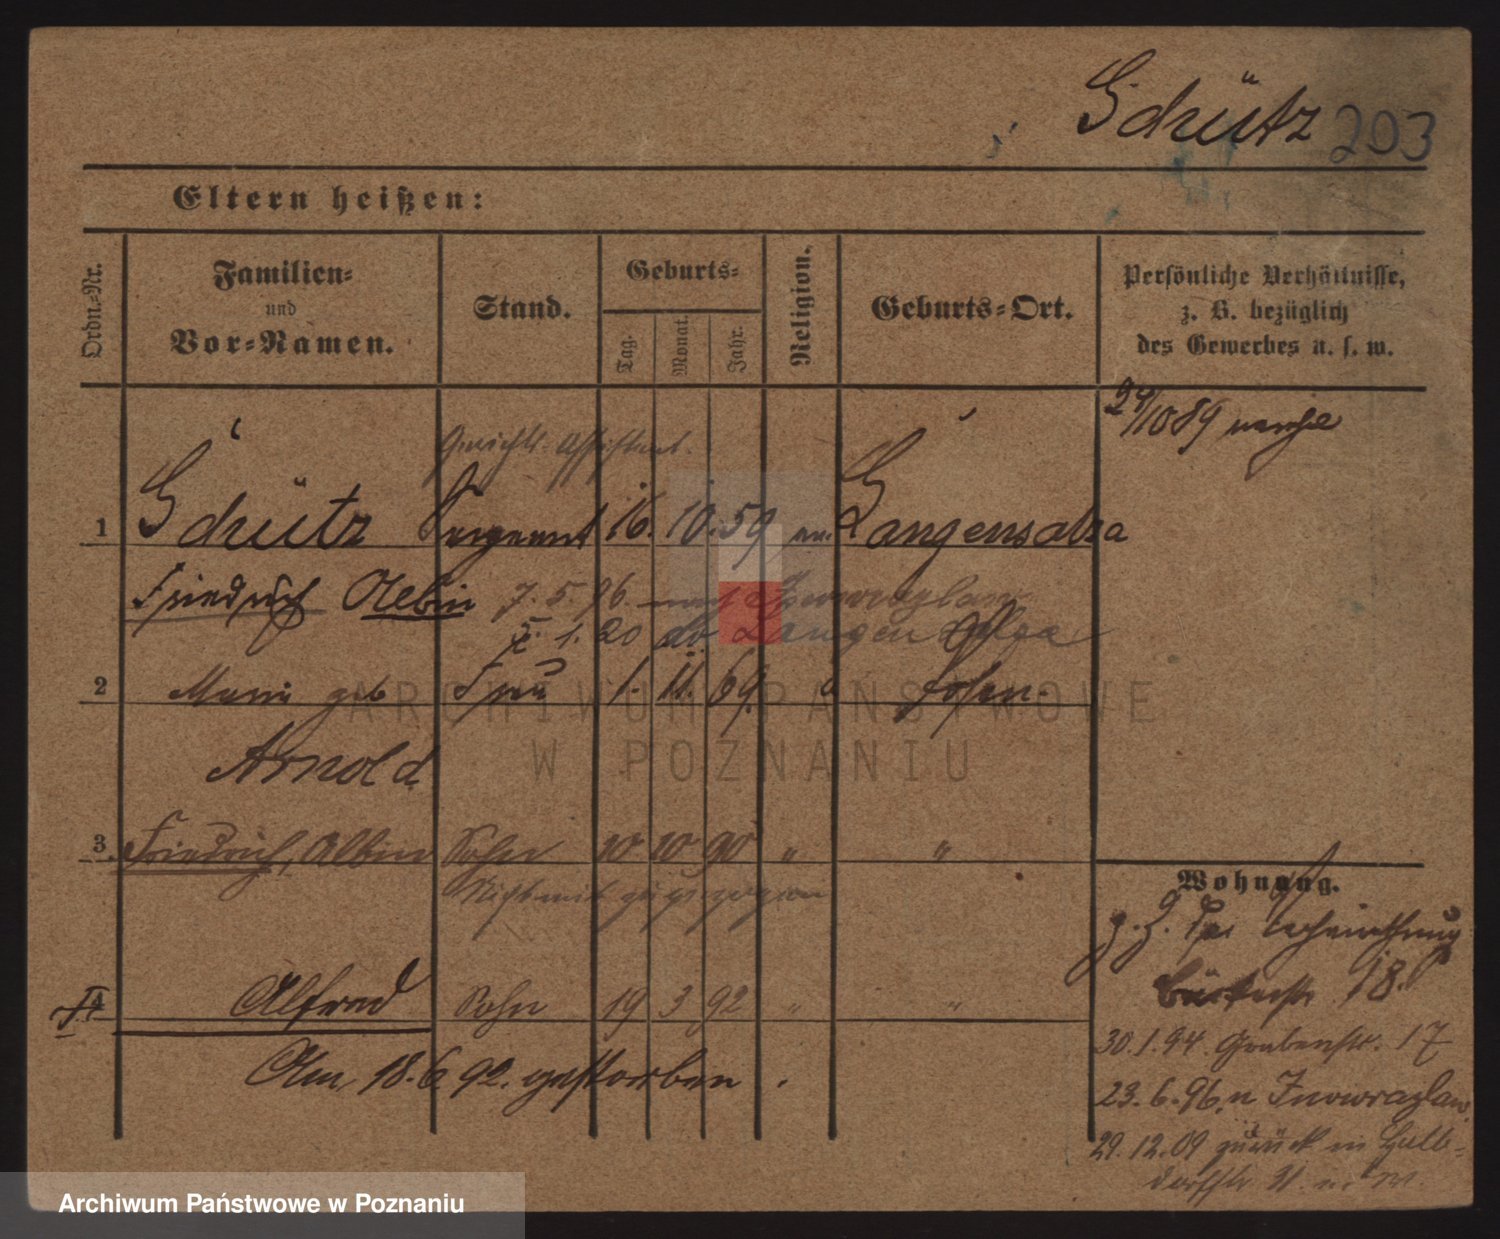 Schütz 203
Eltern heißen:
Ordn.=Nr.
Familien=
und
Vor=Namen.
Stand.
Geburts=
Tag.
Monat.
Jahr.
Religion.
Geburts=Ort.
Persönliche Verhältnisse,
z. B. bezüglich
des Gewerbes u. s. w.
24/10 89
Gerichts-Assistent.
1 Schütz Sergeant 16. 10. 59 ev. Langensalza
Friedrich Albin 7. 5. 96. nach Inowrazlaw
5. 1. 20 do Langen
2 Marie geb Frau 1. 11. 69. Posen.
Arnold
3. Friedrich, Albin Sohn 10 10 90 " "
Nicht mit zugezogen
Wohnung.
z. Z.
18.
4 Alfred Sohn 19 3 92 " "
Am 18. 6. 92. gestorben.
30. 1. 94. Grabenstr. 17
23. 6. 96. n Inowrazlaw
29. 12. 09 zurück in Halb-
dorfstr.
ARCHIWUM PAŃSTWOWE
W POZNANIU
Archiwum Państwowe w Poznaniu